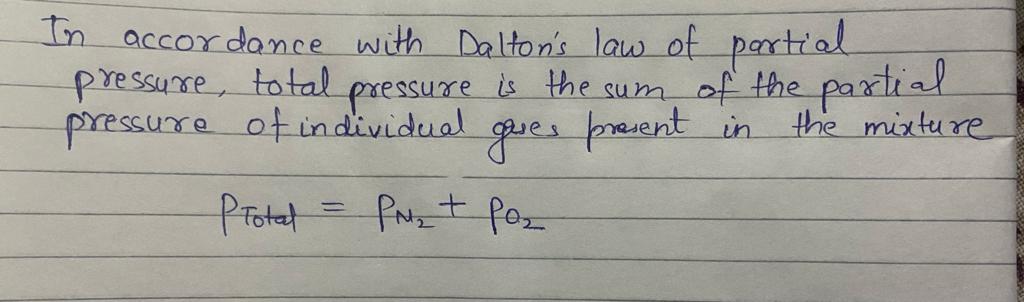 In accordance with Dalton's law of partial
pressure, total pressure is the sum of the partial
pressure of individual gases present in the mixture
PTotal = PN₂ + PO₂